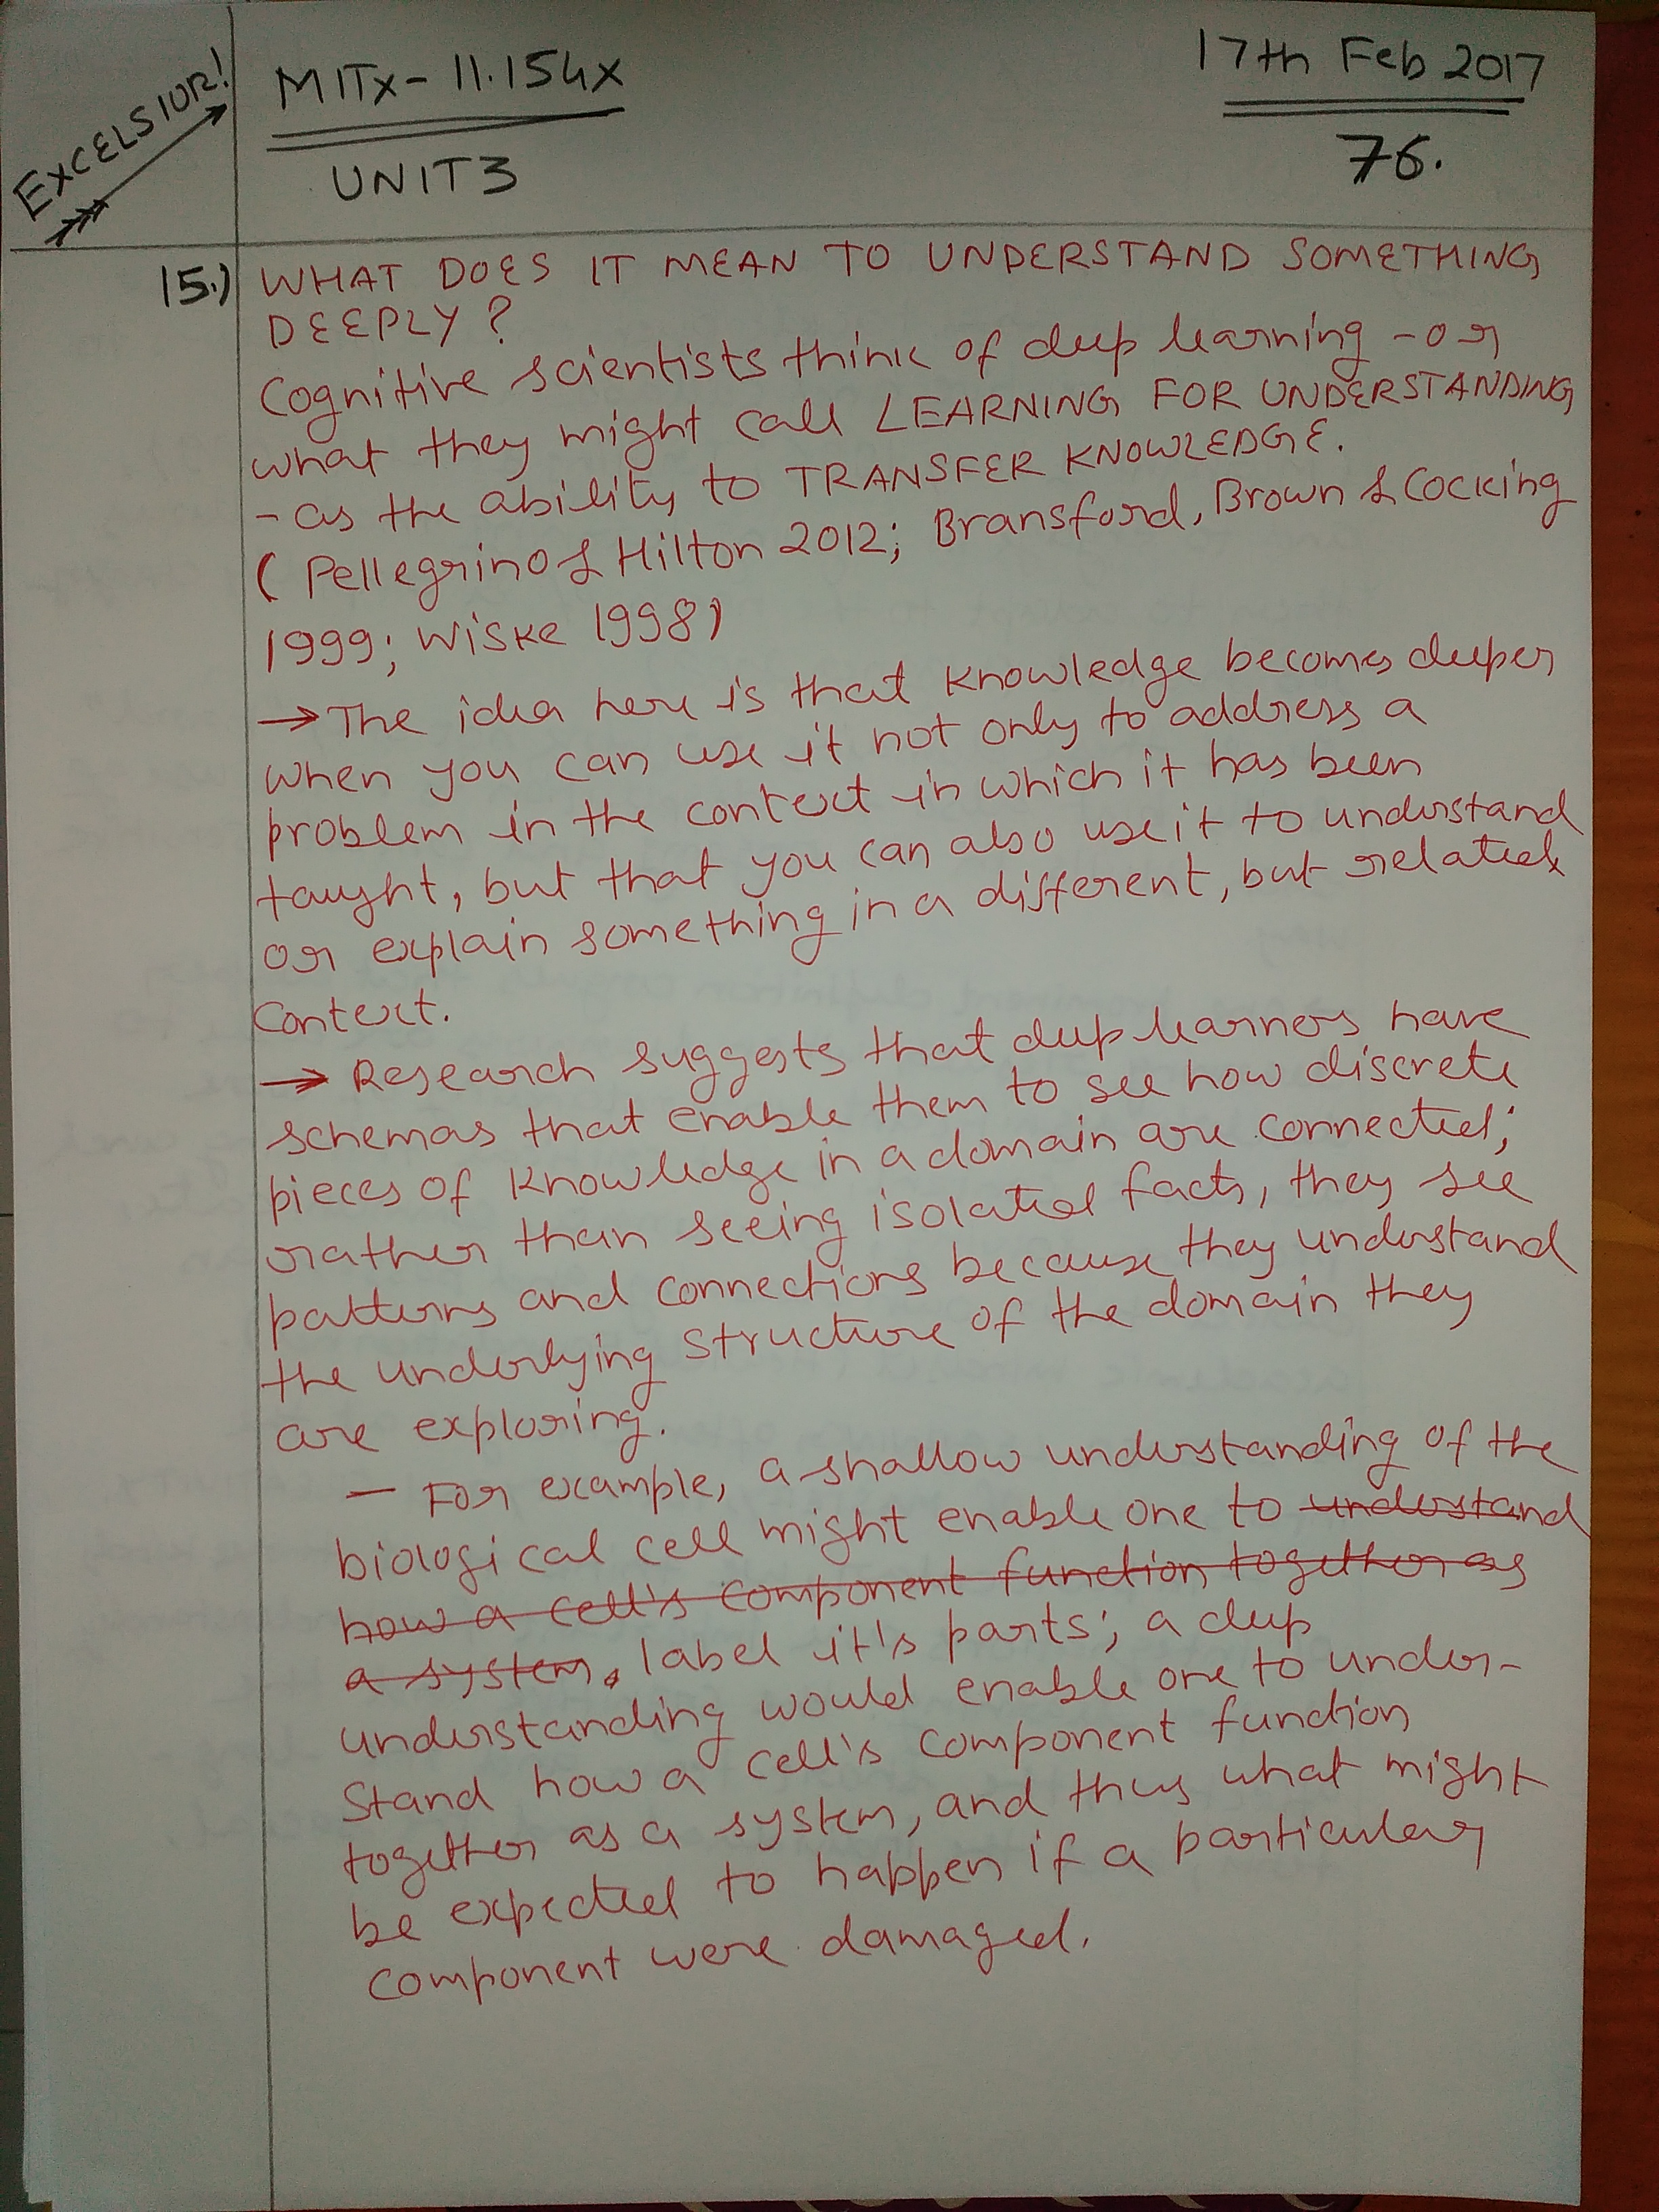 EXCELSIOR!
MITx- 11.154x
UNIT3
17th Feb 2017
76.
15.) WHAT DOES IT MEAN TO UNDERSTAND SOMETHING
DEEPLY?
Cognitive scientists think of deep learning - or
what they might call LEARNING FOR UNDERSTANDING
- as the ability to TRANSFER KNOWLEDGE.
( Pellegrino & Hilton 2012; Bransford, Brown & Cocking
1999; Wiske 1998)
→ The idea here is that knowledge becomes deeper
when you can use it not only to address a
problem in the context in which it has been
taught, but that you can also use it to understand
or explain something in a different, but related
context.
→ Research suggests that deep learners have
schemas that enable them to see how discrete
pieces of knowledge in a domain are connected;
rather than seeing isolated facts, they see
patterns and connections because they understand
the underlying structure of the domain they
are exploring.
- For example, a shallow understanding of the
biological cell might enable one to understand
how a cell's component function together as
a system, label it's parts; a deep
understanding would enable one to under-
stand how a cell's component function
together as a system, and thus what might
be expected to happen if a particular
component were damaged.